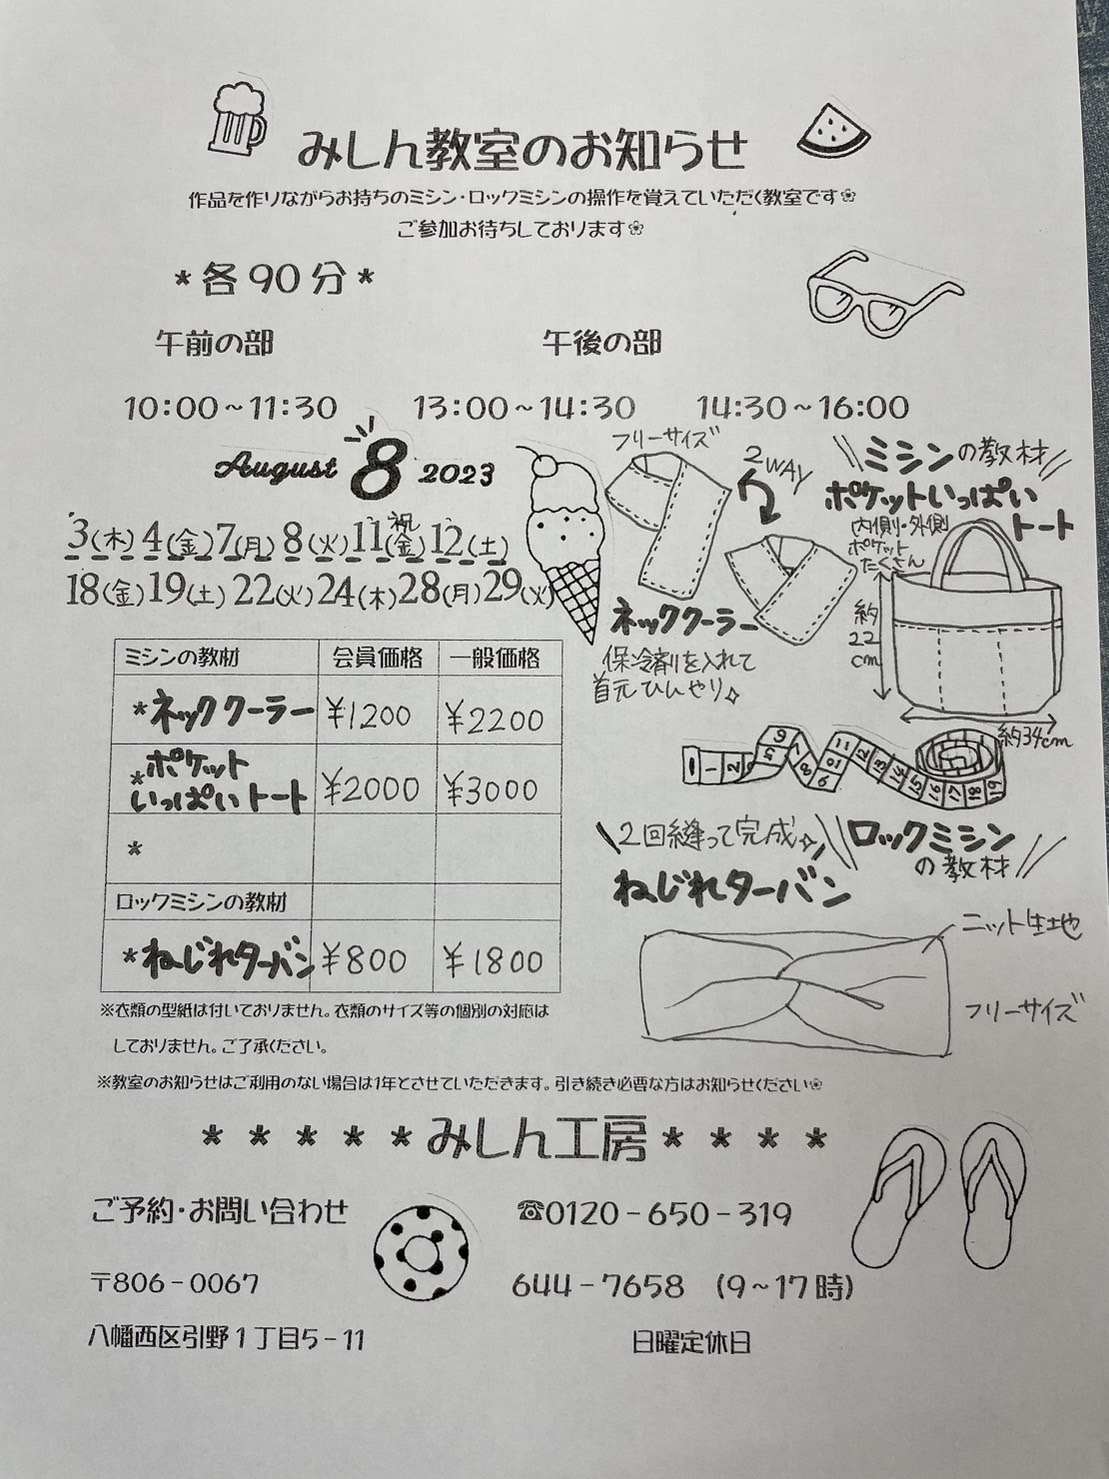 みしん教室のお知らせ
作品を作りながらお持ちのミシン・ロックミシンの操作を覚えていただく教室です❀
ご参加お待ちしております❀
*各90分*
午前の部 午後の部
10:00~11:30 13:00~14:30 14:30~16:00
August 8 2023
3(木)4(金)7(月)8(火)11(金)祝12(土)
18(金)19(土)22(火)24(木)28(月)29(火)
フリーサイズ
2WAY
ネッククーラー
保冷剤を入れて
首元ひんやり✧
\\ミシンの教材//
ポケットいっぱい
トート
内側・外側
ポケット
たくさん
約
22
cm
約34cm
ミシンの教材 会員価格 一般価格
*ネッククーラー ¥1200 ¥2200
*ポケット
いっぱいトート ¥2000 ¥3000
*
ロックミシンの教材
*ねじれターバン ¥800 ¥1800
\2回縫って完成✧/
\\ロックミシン
の教材//
ねじれターバン
ニット生地
フリーサイズ
※衣類の型紙は付いておりません。衣類のサイズ等の個別の対応は
しておりません。ご了承ください。
※教室のお知らせはご利用のない場合は1年とさせていただきます。引き続き必要な方はお知らせください❀
*****みしん工房****
ご予約・お問い合わせ ☎0120-650-319
〒806-0067 644-7658 (9~17時)
八幡西区引野1丁目5-11 日曜定休日